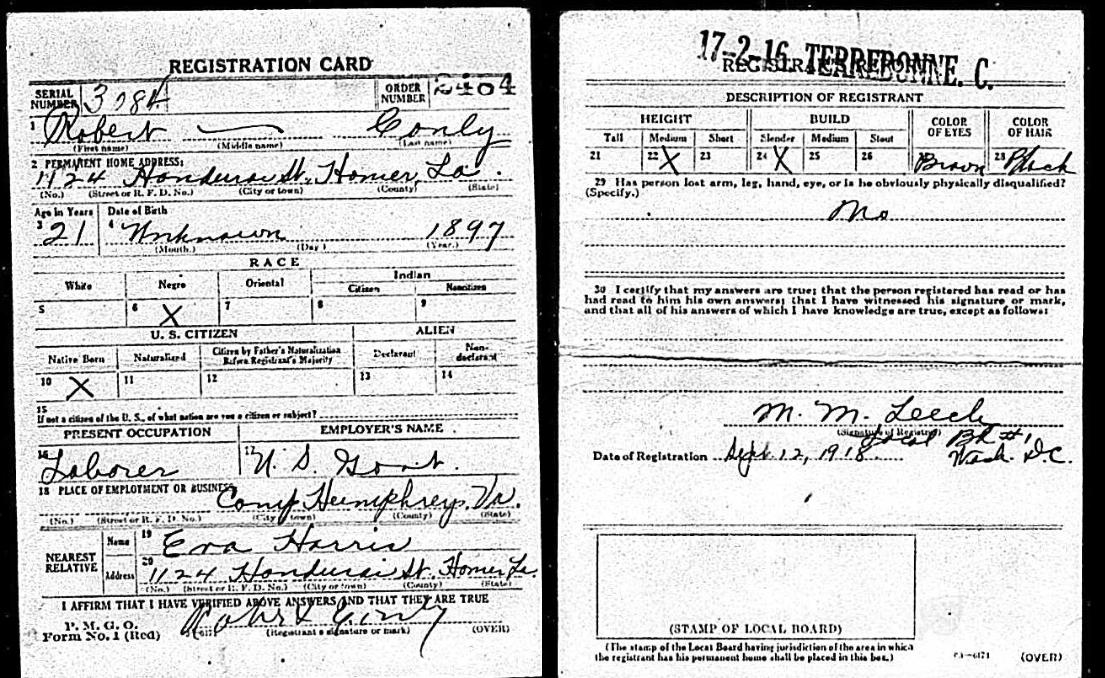 REGISTRATION CARD
SERIAL NUMBER 3784 ORDER NUMBER 2464
1 Robert — Conly
(First name) (Middle name) (Last name)
2 PERMANENT HOME ADDRESS:
1124 Honduras St. Homer, La.
(No.) (Street or R. F. D. No.) (City or town) (County) (State)
Age in Years Date of Birth
3 21 4 Unknown 1897
(Month.) (Day) (Year.)
RACE
White Negro Oriental Indian
Citizen Noncitizen
5 6 X 7 8 9
U. S. CITIZEN ALIEN
Native Born Naturalized Citizen by Father's Naturalization Before Registrant's Majority Declarant Non-declarant
10 X 11 12 13 14
15
If not a citizen of the U. S., of what nation are you a citizen or subject?
PRESENT OCCUPATION EMPLOYER'S NAME
16 Laborer 17 U. S. Govt.
18 PLACE OF EMPLOYMENT OR BUSINESS
Camp Humphreys, Va.
(No.) (Street or R. F. D. No.) (City or town) (County) (State)
NEAREST RELATIVE Name 19 Eva Harris
Address 20 1124 Honduras St. Homer La.
(No.) (Street or R. F. D. No.) (City or town) (County) (State)
I AFFIRM THAT I HAVE VERIFIED ABOVE ANSWERS AND THAT THEY ARE TRUE
P. M. G. O.
Form No. 1 (Red) Robert Conly
(Registrant's signature or mark) (OVER)
17-2-16 TERREBONNE. C.
REGISTRAR'S REPORT
DESCRIPTION OF REGISTRANT
HEIGHT BUILD COLOR OF EYES COLOR OF HAIR
Tall Medium Short Slender Medium Stout
21 22 X 23 24 X 25 26 Brown 28 Black
29 Has person lost arm, leg, hand, eye, or is he obviously physically disqualified?
(Specify.)
No
30 I certify that my answers are true; that the person registered has read or has
had read to him his own answers; that I have witnessed his signature or mark,
and that all of his answers of which I have knowledge are true, except as follows:
M. M. Leech
(Signature of Registrar)
Local Bd #1
Date of Registration Sept. 12, 1918 Wash. D.C.
(STAMP OF LOCAL BOARD)
(The stamp of the Local Board having jurisdiction of the area in which
the registrant has his permanent home shall be placed in this box.)
(OVER)